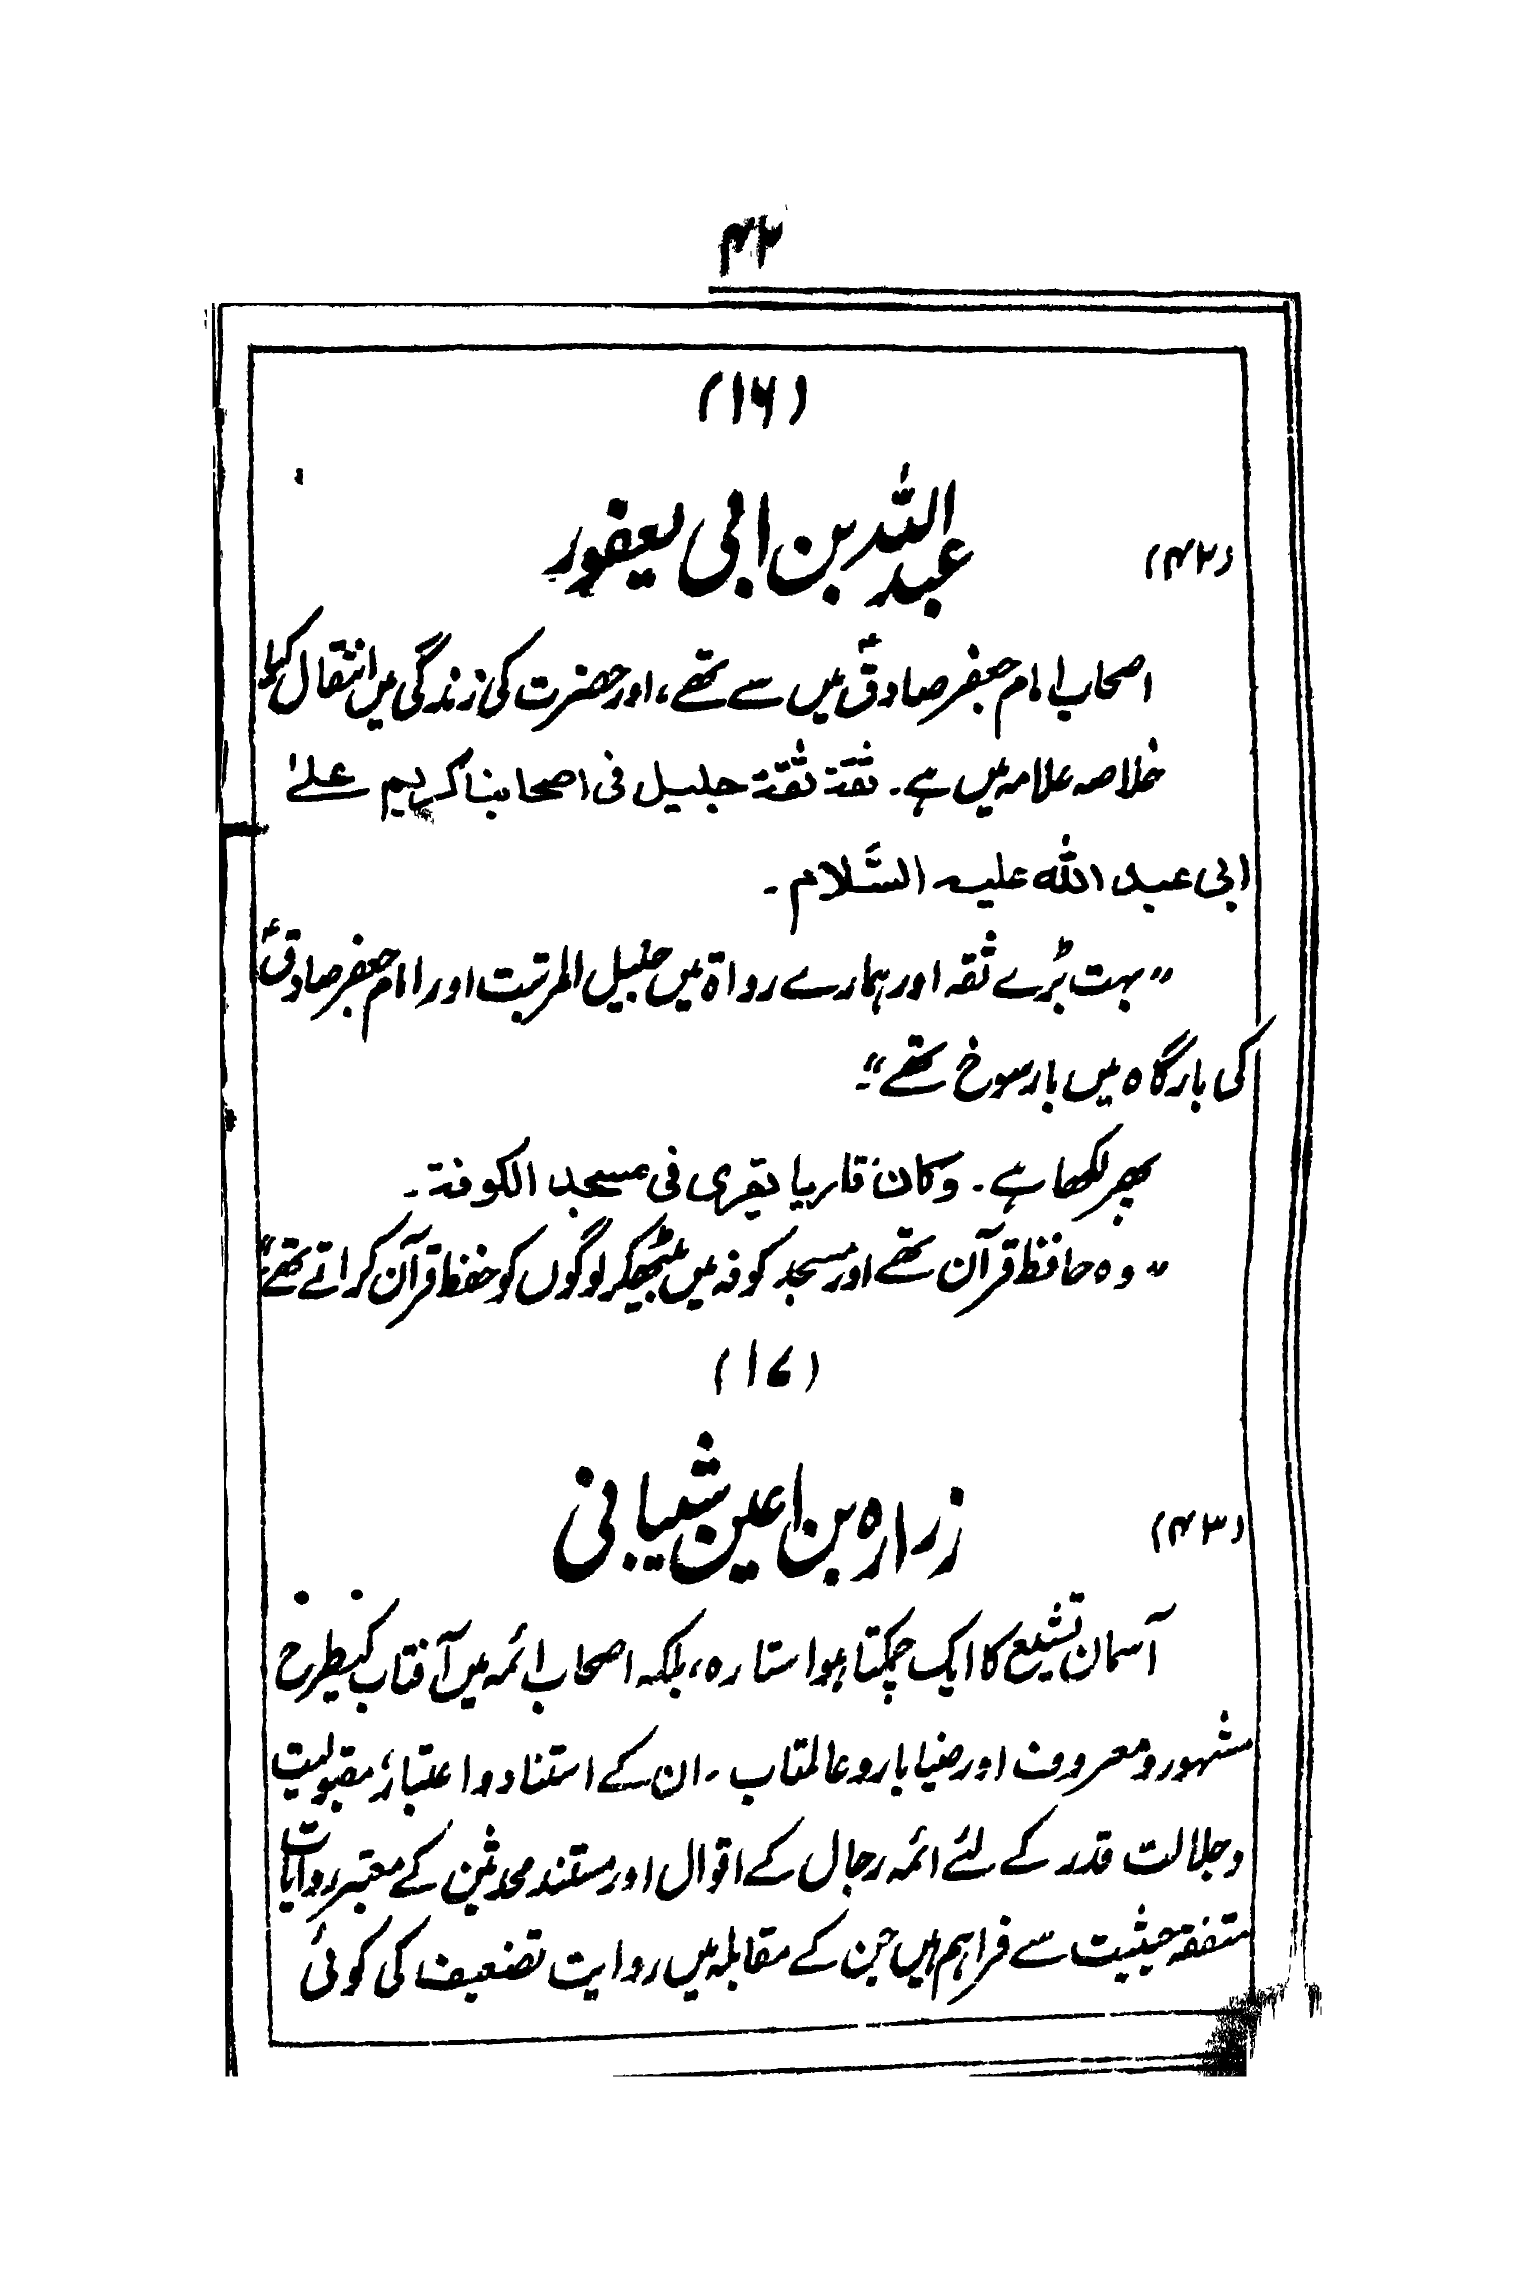 ۴۲
(۱۶)
(۴۲) عبداللہ بن ابی یعفور
اصحاب امام جعفر صادقؑ میں سے تھے، اور حضرت کی زندگی میں انتقال کیا۔
خلاصہ علامہ میں ہے۔ ثقۃ ثقۃ جلیل فی اصحابنا کریم علیٰ
ابی عبد اللہ علیہ السّلام۔
”بہت بڑے ثقہ اور ہمارے رواۃ میں جلیل المرتبت اور امام جعفر صادقؑ
کی بارگاہ میں بارسوخ تھے“۔
پھر لکھا ہے۔ وکان قاریا یقری فی مسجد الکوفۃ۔
”وہ حافظ قرآن تھے اور مسجد کوفہ میں بیٹھکر لوگوں کو حفظ قرآن کراتے تھے“۔
(۱۷)
(۴۳) زرارہ بن اعین شیبانی
آسمان تشیع کا ایک چمکتا ہوا ستارہ، بلکہ اصحاب ائمہ میں آفتاب کیطرح
مشہور و معروف اور ضیا بار و عالمتاب۔ ان کے استناد و اعتبار، مقبولیت
و جلالت قدر کے لئے ائمہ رجال کے اقوال اور مستند محدثین کے معتبر روایات
متفقہ حیثیت سے فراہم ہیں جن کے مقابلہ میں روایت تضعیف کی کوئی